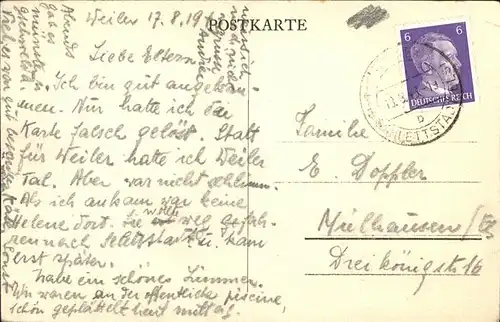 Weiler 17.8.19
POSTKARTE
Liebe Eltern
Ich bin gut angekom-
men. Nur hatte ich die
Karte falsch gelöst. Statt
für Weiler hatte ich Weiler
Tal. Aber war nicht schlimm.
Als ich ankam war keine
Helene dort. Sie weg gefah-
ren nach Schlettstadt u. kam
erst später.
Habe ein schönes Zimmer.
Wir waren an der öffentliche piscine,
schön geplättelt heut mittag.
Abends
gab es
6
6
DEUTSCHES REICH
SCHLETTSTADT
b
Familie
E. Doppler
Mülhausen
Dreikönigstr. 16